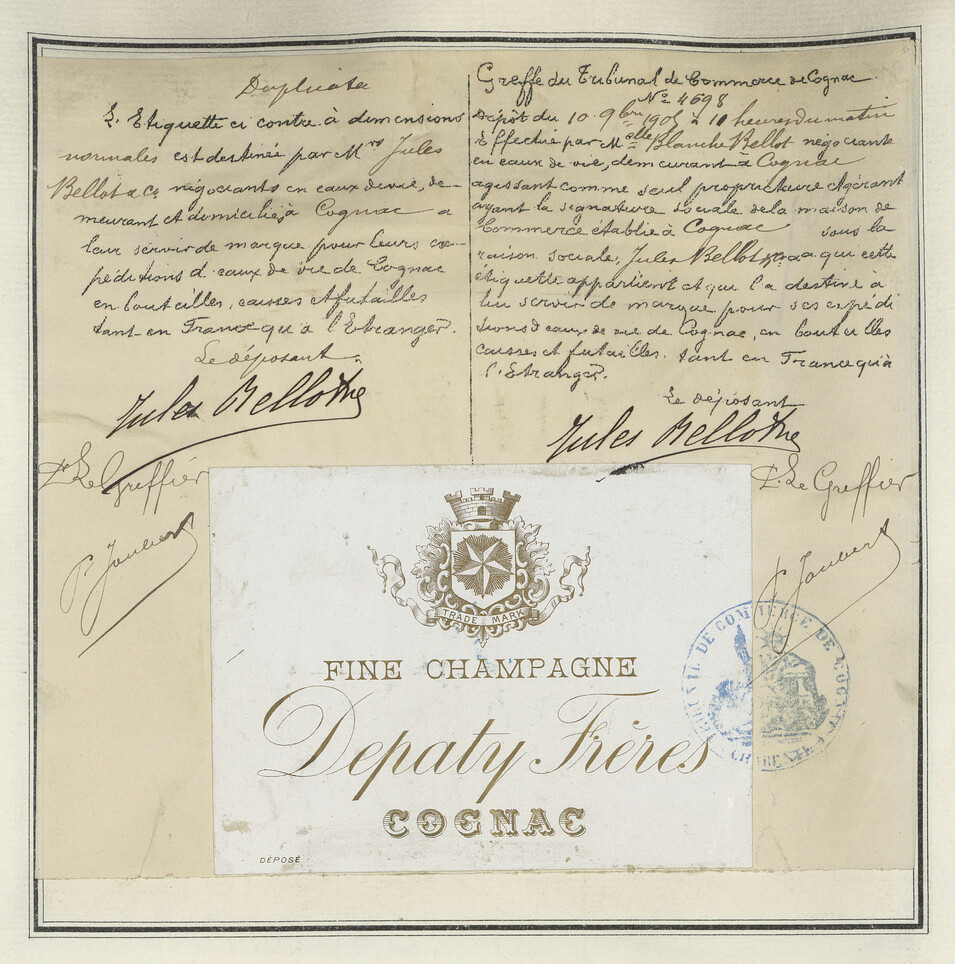 Duplicata
L'Etiquette ci contre à dimensions
normales est destinée par Mrs Jules
Bellot & Co négociants en eaux de vie, de-
meurant et domiciliés à Cognac a
leur servir de marque pour leurs ex-
péditions d'eaux de vie de Cognac
en bouteilles, caisses et futailles
tant en France qu'à l'Etranger.
Le déposant
Jules Bellot & Co
Pr Le Greffier
P. Joubert
Greffe du Tribunal de Commerce de Cognac
No 4698
Dépôt du 10 9bre 1905 à 10 heures du matin
Effectué par Melle Blanche Bellot négociante
en eaux de vie, demeurant à Cognac
agissant comme seul propriétaire & gérant
ayant la signature sociale de la maison de
Commerce établie à Cognac sous la
raison sociale, Jules Bellot & Co a qui cette
étiquette appartient et qui l'a destiné à
lui servir de marque pour ses expédi
tions d'eaux de vie de Cognac, en bouteilles
caisses et futailles. tant en France qu'à
l'Etranger.
Le déposant
Jules Bellot & Co
P. Le Greffier
P. Joubert
TRADE MARK
FINE CHAMPAGNE
Depaty Frères
COGNAC
DÉPOSÉ
TRIBUNAL DE COMMERCE DE COGNAC
CHARENTE